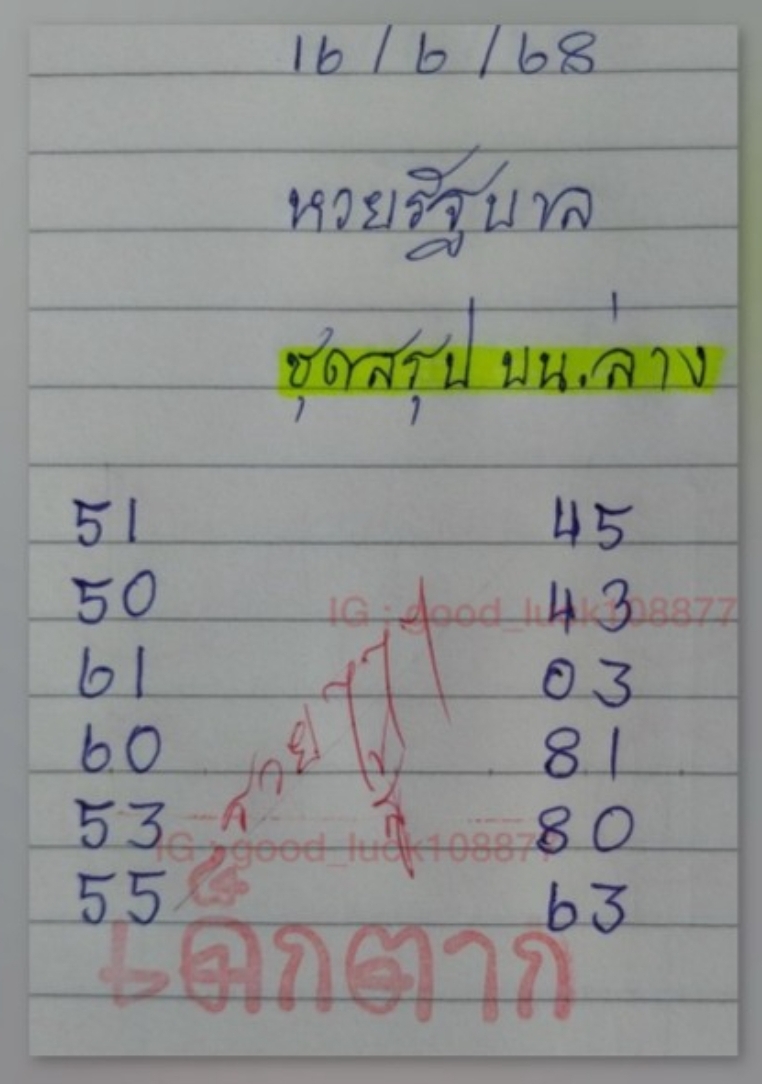 16/6/68
หวยรัฐบาล
ชุดสรุป บน.ล่าง
51 45
50 43
IG : good_luck108877
61 03
60 81
53 80
IG : good_luck108877
55 63
เด็กตาก